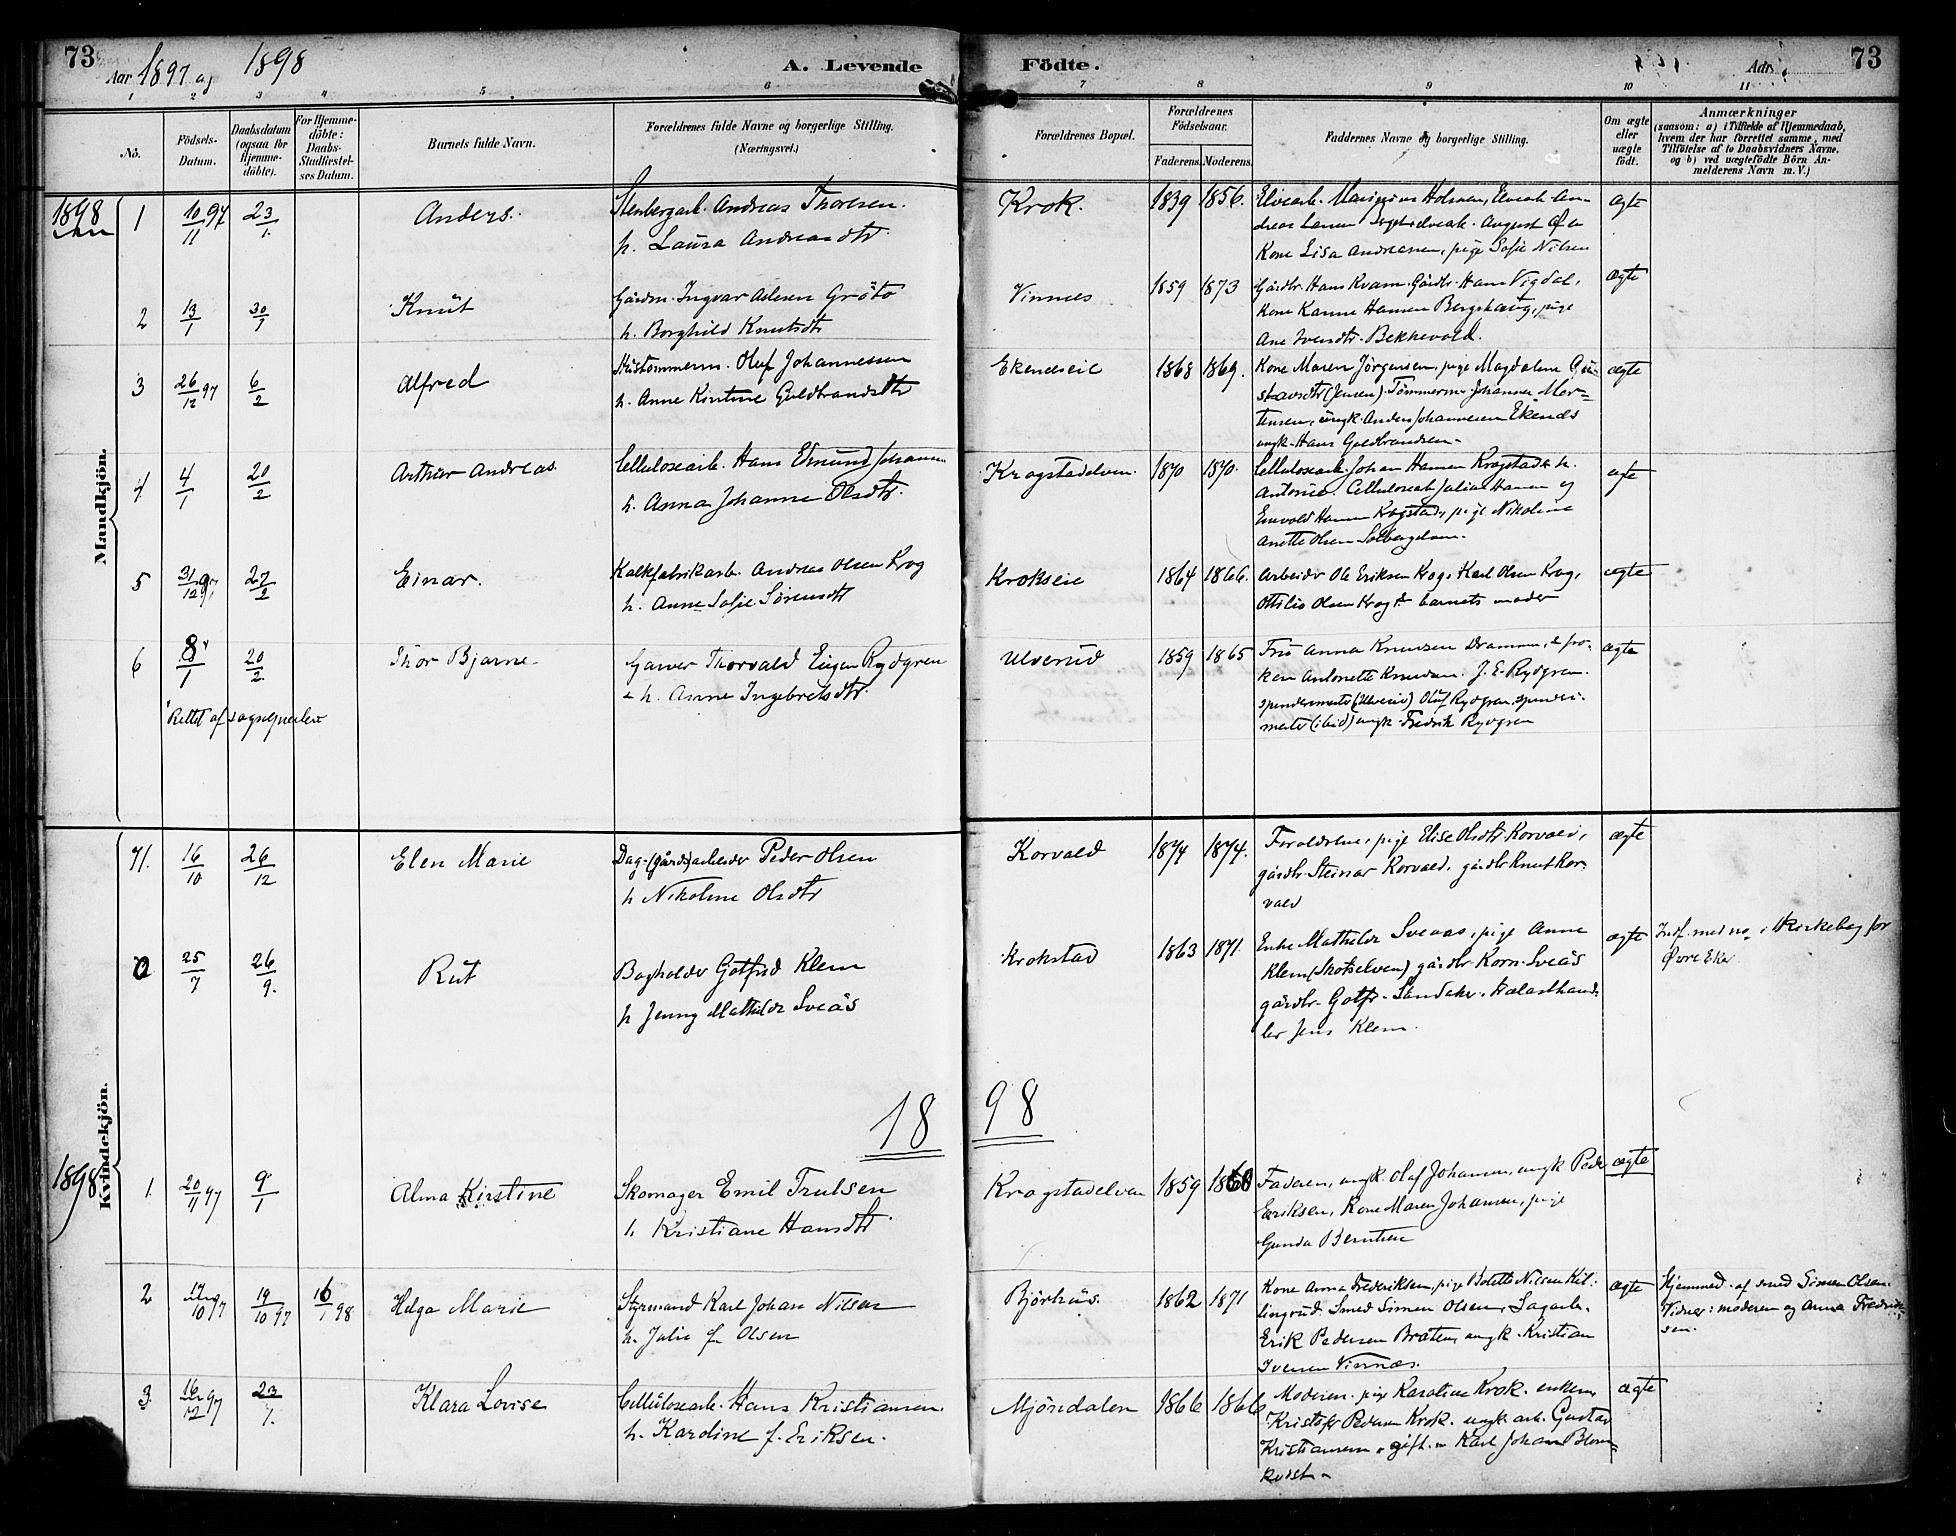 73
Aar 1897 og 1898
A. Levende
Födte.
Aar
73
1 2 3 4 5 6 7 8 9 10 11
No.
Födsels-
Datum.
Daabsdatum
(ogsaa for
Hjemme-
döbte).
For Hjemme-
döbte:
Daabs-
Stadfæstel-
ses Datum.
Barnets fulde Navn.
Forældrenes fulde Navne og borgerlige Stilling.
(Næringsvei.)
Forældrenes Bopæl.
Forældrenes
Födselsaar.
Faderens.
Moderens.
Faddernes Navne og borgerlige Stilling.
Om ægte
eller
uægte
födt.
Anmærkninger
(saasom: a) i Tilfælde af Hjemmedaab,
hvem der har forrettet samme, med
Tilföielse af to Daabsvidners Navne,
og b) ved uægtefödte Börn An-
melderens Navn m. V.)
Mandkjön.
1898
1 10/11 97 23/1. Anders.
Andreas Thoresen.
h. Laura Andreasdtr
Krok. 1839 1856.
August
Kone Lisa Andreasen, pige Sofie Nilsen
ægte
2 13/1 30/1 Knut
Gårdm. Ingvar Aslesen Gröto
h. Borghild Knutsdtr
Vinnes 1859 1873
Gårdbr. Hans Kvam, Gårdbr. Hans Vigdal,
Kone Hansen Berghaug, pige
Ane Iversdtr. Bekkevold.
ægte
3 26/12 97 6/2 Alfred
Oluf Johannessen
h. Anne Kirstine Guldbrandsdtr
Ekenæseie 1868 1869.
Kone Maren Jörgensen, pige Magdalene Gu-
stavsdtr (Jensen) Tömmerm. Johannes Mor-
tensen, ungk. Anders Johannesen Ekenæs
ungk. Hans Guldbrandsen.
ægte
4 4/1 20/2 Arthur Andreas.
Cellulosearb. Hans Edmund Johansen
h. Anna Johanne Olsdtr.
Krogstadelven. 1870 1870.
Cellulosearb. Johan Hansen Krogstad & h.
Antonie. Cellulosearb. Julius Hansen og
Hansen Krogstad, pige Nikoline
Anette Olsen Solbergelven.
ægte
5 31/12 97 27/2 Einar.
Kalkfabrikarb. Andreas Olsen Krog
h. Anne Sofie Sörensdtr
Krokseie 1864 1866.
Arbeider Ole Eriksen Krog, Karl Olsen Krog,
Ottilie Olsen Krog & barnets moder
ægte
6 8/1 20/2 Thor Bjarne
Garver Thorvald Eugen Rydgren
& h. Anne Ingebretsdtr.
Ulverud 1859 1865
Fru Anna Knudsen Drammen, frö-
ken Antonette Knudsen. J. E. Rydgren.
Oluf Rydgren
(ibid) ungk. Fredrik Rydgren
ægte
Rettet af sogneprest
Kvindekjön.
71. 16/10 26/12 Elen Marie
Dag-(gårds)arbeider Peder Olsen
h Nikoline Olsdtr
Korvald 1874 1874.
Forældrene, pige Elise Olsdtr. Korvald,
gårdbr. Steinar Korvald, gårdbr. Knut Kor-
vald
ægte
0 25/7 26/9. Rut
Bogholder Gotfred Klem
h Jenny Mathilde Sveås
Krokstad 1863 1871.
Enke Mathilde Sveaas, pige Anne
Klem (Skotselven) gårdbr. Korn. Sveås
gårdbr. Gotfr. Sandaker, Trælasthand-
ler Jens Klem.
ægte
Indf. med no i Kirkebog for
Øvre Eker
18 98
1898
1. 20/11 97 9/1 Alma Kirstine
Skomager Emil Trulsen
h. Kristiane Hansdtr
Krogstadelven 1859 1860
Faderen, ungk. Olaf Johansen, ungk Peder
Eeriksen, Kone Maren Johansen, pige
Gunda Berntsen
ægte
2 17/10 97 19/10 97 16/1 98 Helga Marie
Styrmand Karl Johan Nilsen
h. Julie f. Olsen
Björhus. 1862 1871
Kone Anna Frederiksen, pige Bolette Nilsen Kil-
lingrud. Smed Simen Olsen, Sagarb.
Erik Pedersen Bråten, ungk. Kristian
Iversen Vinnæs.
ægte
Hjemmed. af smed Simen Olsen.
Vidner: moderen og Anna Fredrik-
sen.
3. 16/12 97 23/1. Klara Lovise
Cellulosearb. Hans Kristiansen.
h. Karoline f. Eriksen.
Mjöndalen 1866 1866
Moderen. pige Karoline Krok. enkem.
Kristofer Pedersen Krok. ungk. arb. Gustav
Kristiansen & gift. m. Karl Johan Blom-
kvist
ægte